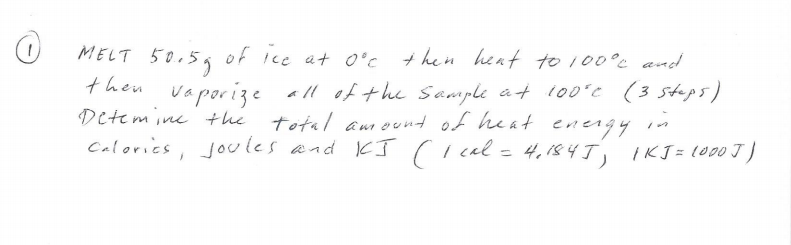 ① MELT 50.5g of ice at 0°C then heat to 100°C and
then vaporize all of the sample at 100°C (3 steps)
Detemine the total amount of heat energy in
Calories, Joules and KJ (1 cal = 4.184J, 1KJ=1000J)